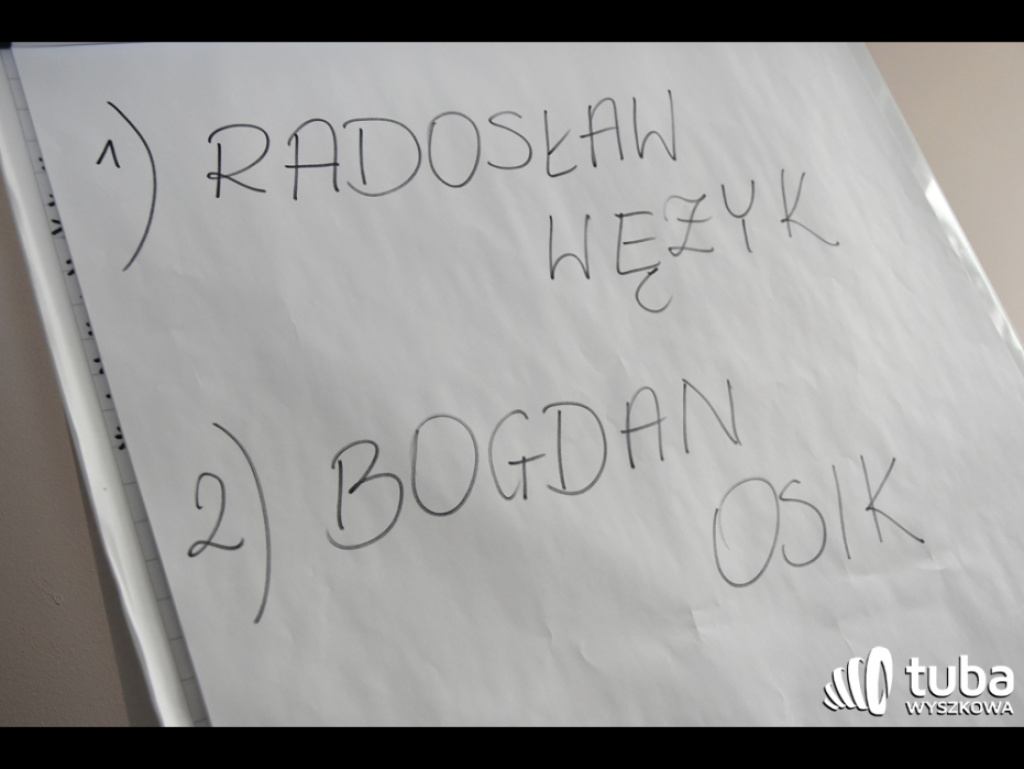 1) RADOSŁAW
WĘŻYK
2) BOGDAN
OSIK
tuba
WYSZKOWA